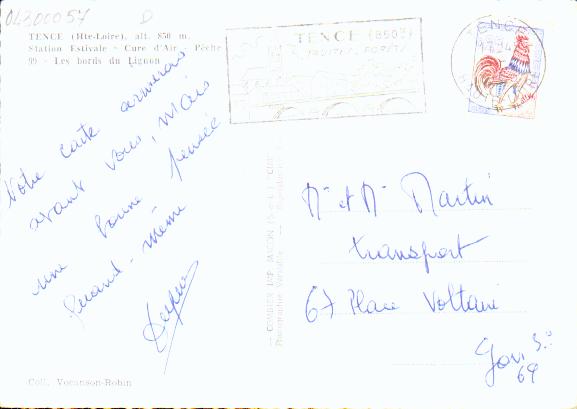 04300057 D
TENCE (Hte-Loire), alt. 850 m.
Station Estivale - Cure d'Air - Pêche
99 - Les bords du Lignon
TENCE (850m)
TRUITES, FORÊTS
TENCE
Notre carte arrivera
avant vous, mais
une bonne pensée
quand-même
Mr et Me Martin
transport
67 Place Voltaire
69
COMBIER IMP. MACON (S.-et-L.) "CIM"
Photographie Véritable
Coll. Vocanson-Robin